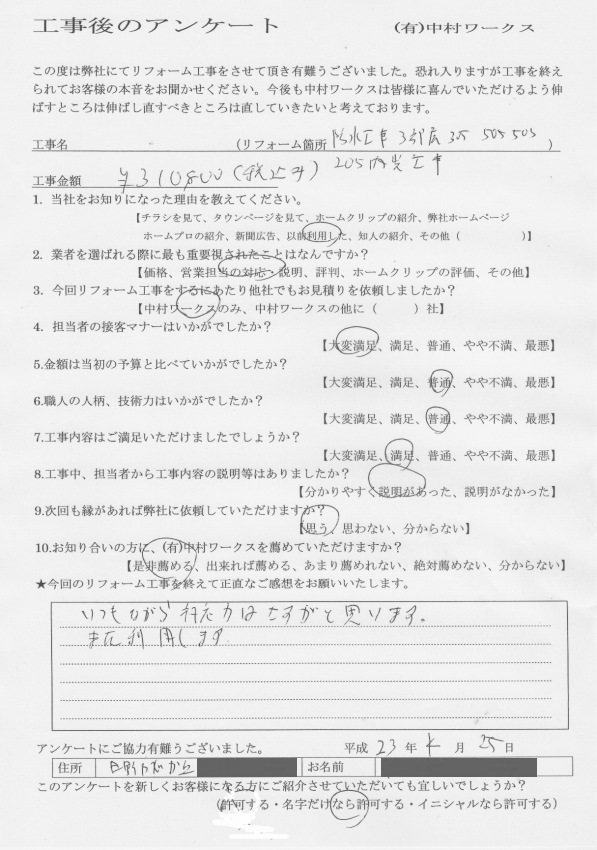 工事後のアンケート (有)中村ワークス
この度は弊社にてリフォーム工事をさせて頂き有難うございました。恐れ入りますが工事を終え
られてお客様の本音をお聞かせください。今後も中村ワークスは皆様に喜んでいただけるよう伸
ばすところは伸ばし直すべきところは直していきたいと考えております。
工事名 (リフォーム箇所 防水工事 3部屋 305 505 503 )
工事金額 ¥310800(税込み) 205 内装工事
1. 当社をお知りになった理由を教えてください。
【チラシを見て、タウンページを見て、ホームクリップの紹介、弊社ホームページ
ホームプロの紹介、新聞広告、以前利用した、知人の紹介、その他( )】
2. 業者を選ばれる際に最も重要視されたことはなんですか?
【価格、営業担当の対応・説明、評判、ホームクリップの評価、その他】
3. 今回リフォーム工事をするにあたり他社でもお見積りを依頼しましたか?
【中村ワークスのみ、中村ワークスの他に( )社】
4. 担当者の接客マナーはいかがでしたか?
【大変満足、満足、普通、やや不満、最悪】
5.金額は当初の予算と比べていかがでしたか?
【大変満足、満足、普通、やや不満、最悪】
6.職人の人柄、技術力はいかがでしたか?
【大変満足、満足、普通、やや不満、最悪】
7.工事内容はご満足いただけましたでしょうか?
【大変満足、満足、普通、やや不満、最悪】
8.工事中、担当者から工事内容の説明等はありましたか?
【分かりやすく説明があった、説明がなかった】
9.次回も縁があれば弊社に依頼していただけますか?
【思う、思わない、分からない】
10.お知り合いの方に、(有)中村ワークスを薦めていただけますか?
【是非薦める、出来れば薦める、あまり薦めれない、絶対薦めない、分からない】
★今回のリフォーム工事を終えて正直なご感想をお願いいたします。
いつもながら対応力はさすがと思います。
また利用します
アンケートにご協力有難うございました。 平成 23 年 月 25 日
住所 お名前
このアンケートを新しくお客様になる方にご紹介させていただいても宜しいでしょうか?
(許可する・名字だけなら許可する・イニシャルなら許可する)